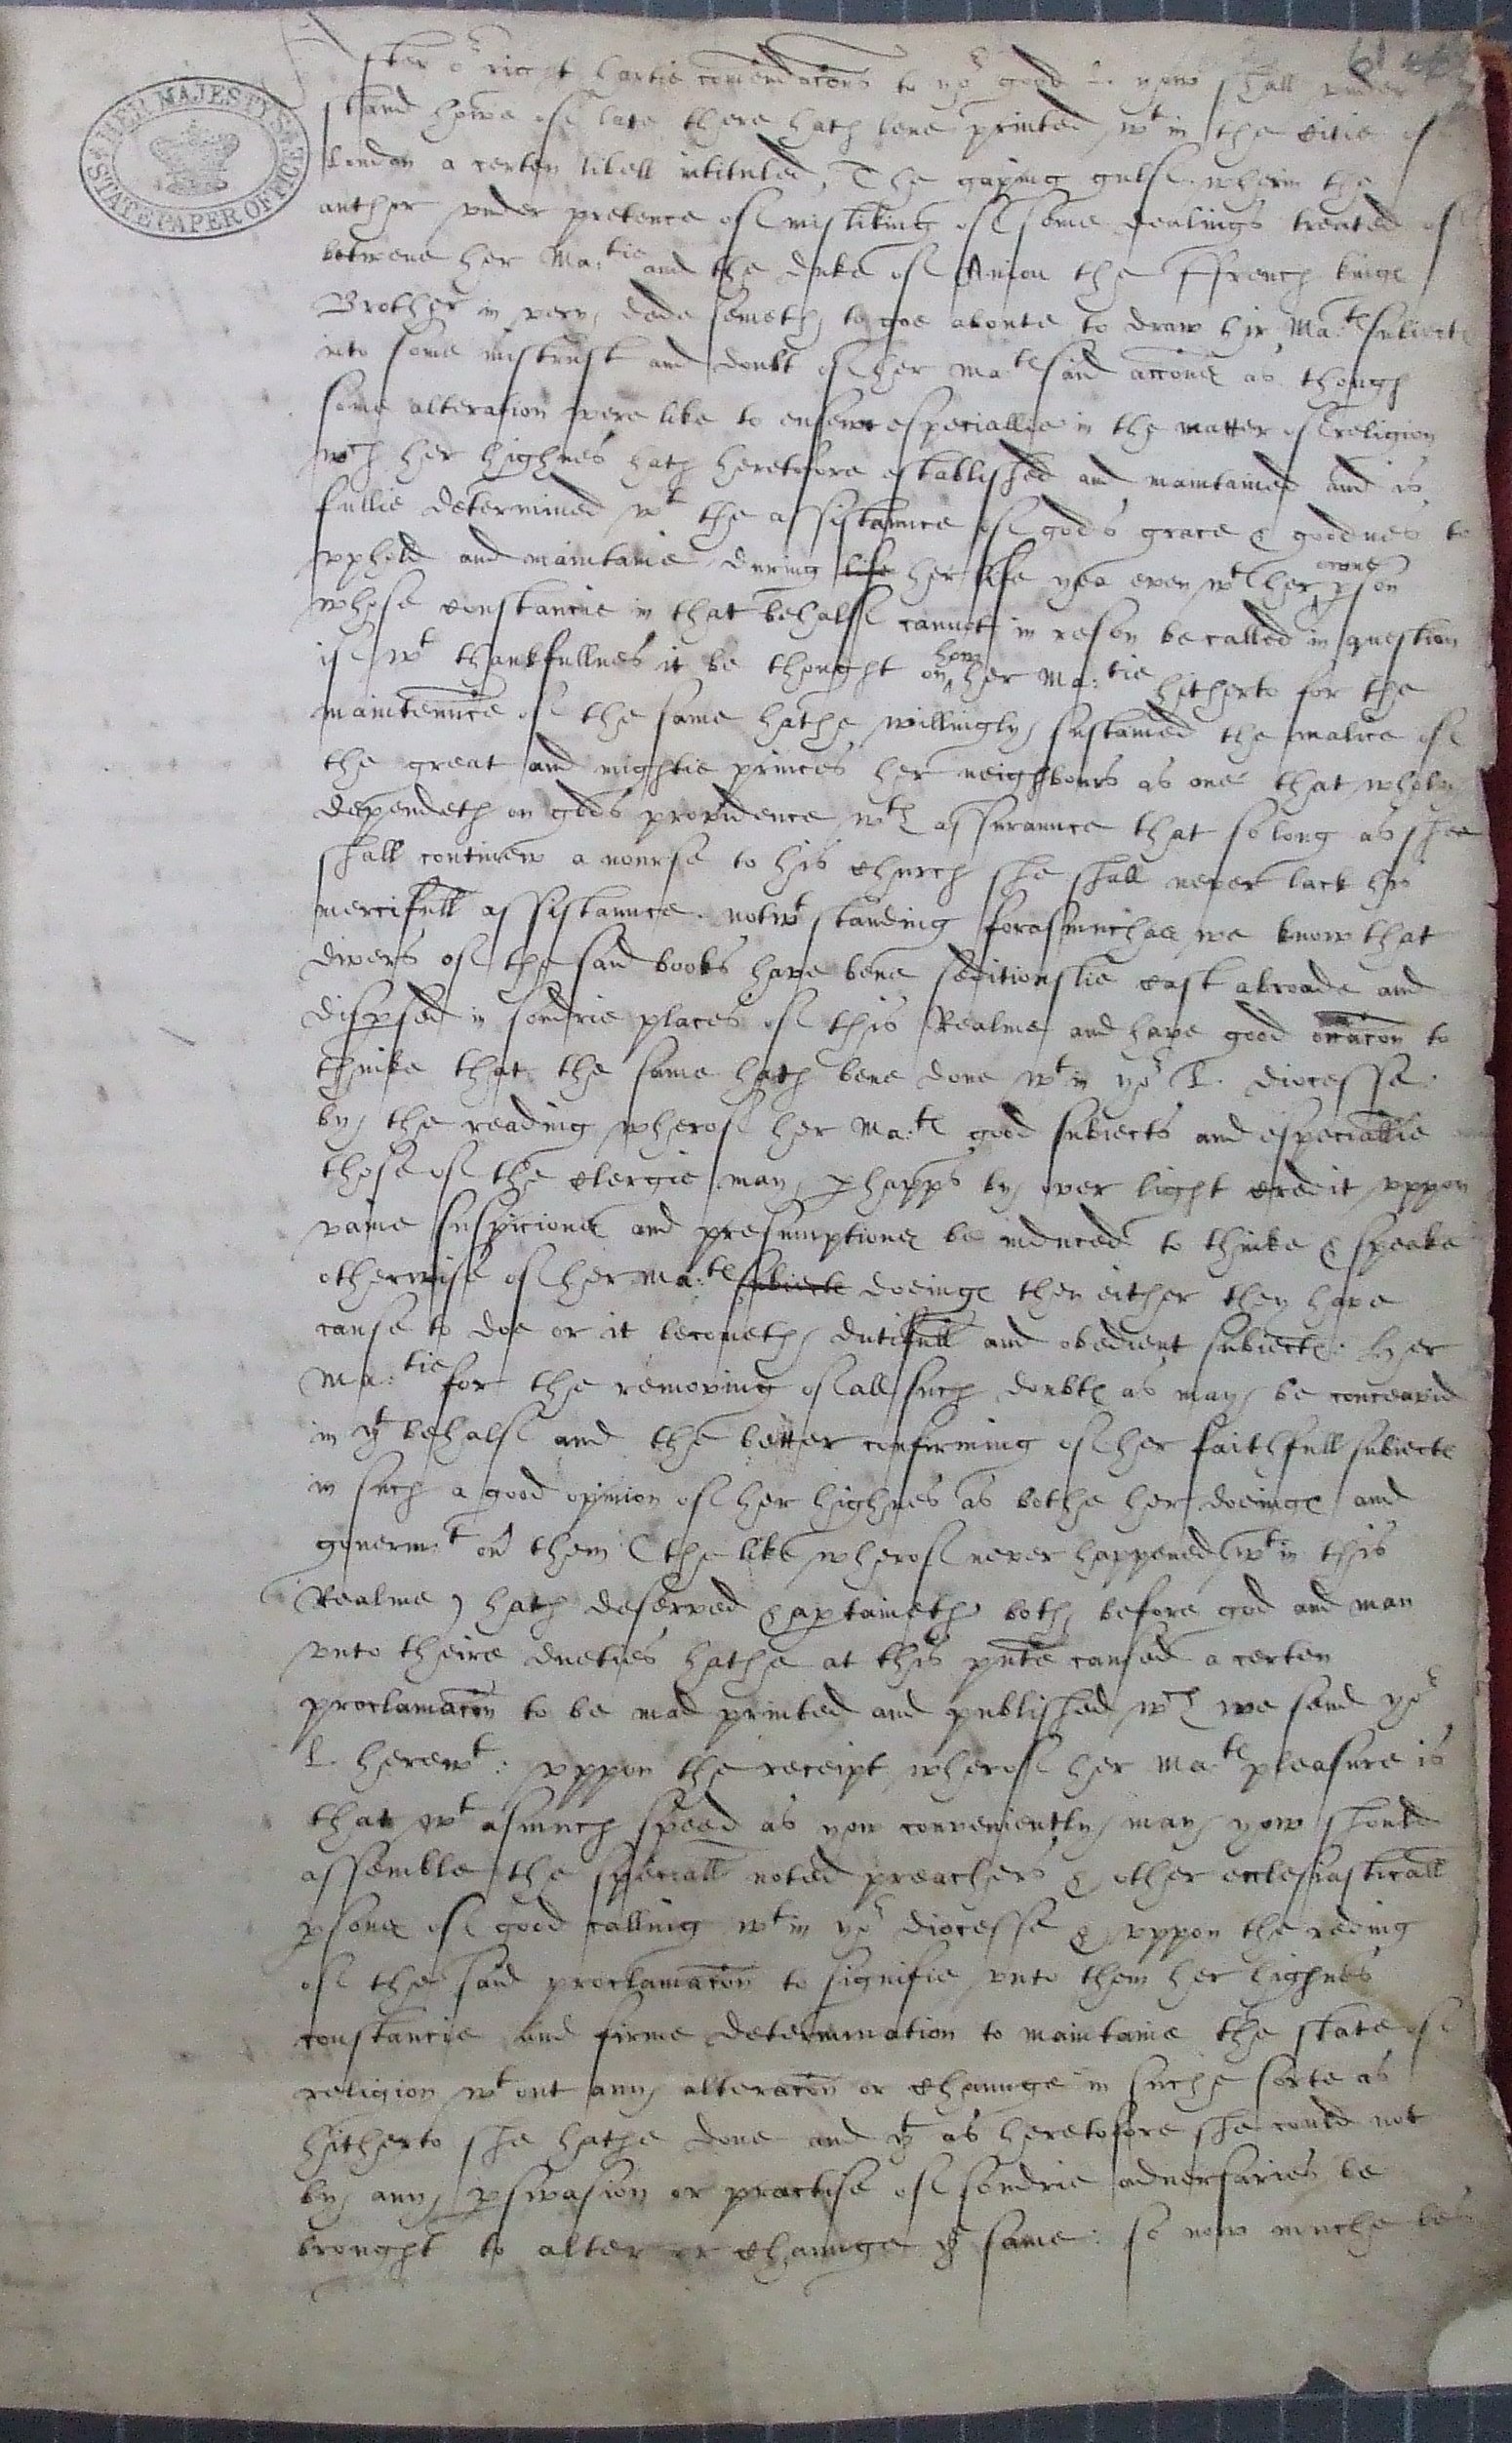 HER MAJESTY'S STATE PAPER OFFICE
After or right hartie comendacons to yor good L. yow shall vnder
stand howe of late there hath bene printed wt in the citie of
London a certen libell intituled, The gaping gulfe. wherin the
author vnder pretence of misliking of some dealings treated of
betwene her Ma:tie and the duke of Aniou the ffrench kinge
Brother in very dede semeth to goe aboute to draw hir Ma:te subiecte
into some mistrust and doubt of her Ma:te said accone as though
some alteration were like to ensewe especiallie in the matter of religion
wch her highnes hath heretofore established and maintained and is
fullie determined wt the assistaunce of gods grace & goodnes to
vphold and maintaine during life her life yea even wth her owne pson
whose constancie in that behalfe cannot in reason be called in question
if wt thankfullnes it be thought on how her Ma:tie hitherto for the
maintenñce of the same hathe willingly sustained the malice of
the great and mightie princes her neighbours as one that wholy
dependeth on gods providence wth assuraunce that so long as shee
shall continew a nourse to his church she shall never lack his
mercifull assistaunce. notwtstanding forasmuchas we know that
divers of the said books have bene seditiouslie cast abroade and
dispsed in sondrie places of this Realme and have good occacon to
thinke that the same hath bene done wtin yor L. diocesse.
by the reading wherof her Ma:te good subiects and especiallie
those of the clergie may phapps by over light credit vppon
vaine suspicione and presumptione be induced to thinke & speake
otherwise of her Ma:te subiecte doeinge then either they have
cause to doe or it becometh dutifull and obedient subiecte. Her
Ma:tie for the removing of all such doubte as may be conceavid
in yt behalfe and the better confirming of her faithfull subiecte
in such a good opinion of her highnes as bothe her doeinge and
govermt on them (the like wherof never happened wtin this
Realme) hath deserved & aptaineth both before god and man
vnto theire dueties hathe at this pñte caused a certen
proclamacon to be mad printed and published wch we send yor
L. herewt: vppon the receipt wherof her Ma:te pleasure is
that wt asmuch speed as yow conveniently may yow should
assemble the speciall noted preachers & other ecclesiasticall
psone of good calling wtin yor diocesse & vppon the reding
of the said proclamacon to signifie vnto them her highnes
constancie and firme determination to maintaine the state of
religion wtout any alteracon or chaunge in suche sorte as
hitherto she hathe done and yt as heretofore she could not
by any pswasion or practise of sondrie adversaries be
brought to alter or chaunge ye same: so now muche les